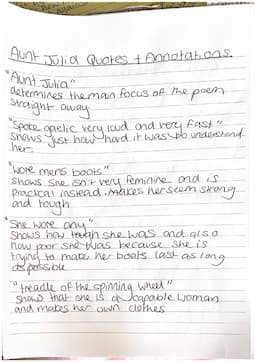 Aunt Julia Quotes + Annotations.
"Aunt Julia"
determines the main focus of the poem
straight away
"Spoke gaelic very loud and very fast"
shows just how hard it was to understand
her
"wore mens boots"
shows she isn't very feminine and is
practical instead. Makes her seem strong
and tough
"She wore any"
shows how tough she was and also
how poor she was because she is
trying to make her boots last as long
as possible
"treadle of the spinning wheel"
show that she is a capable woman
and makes her own clothes